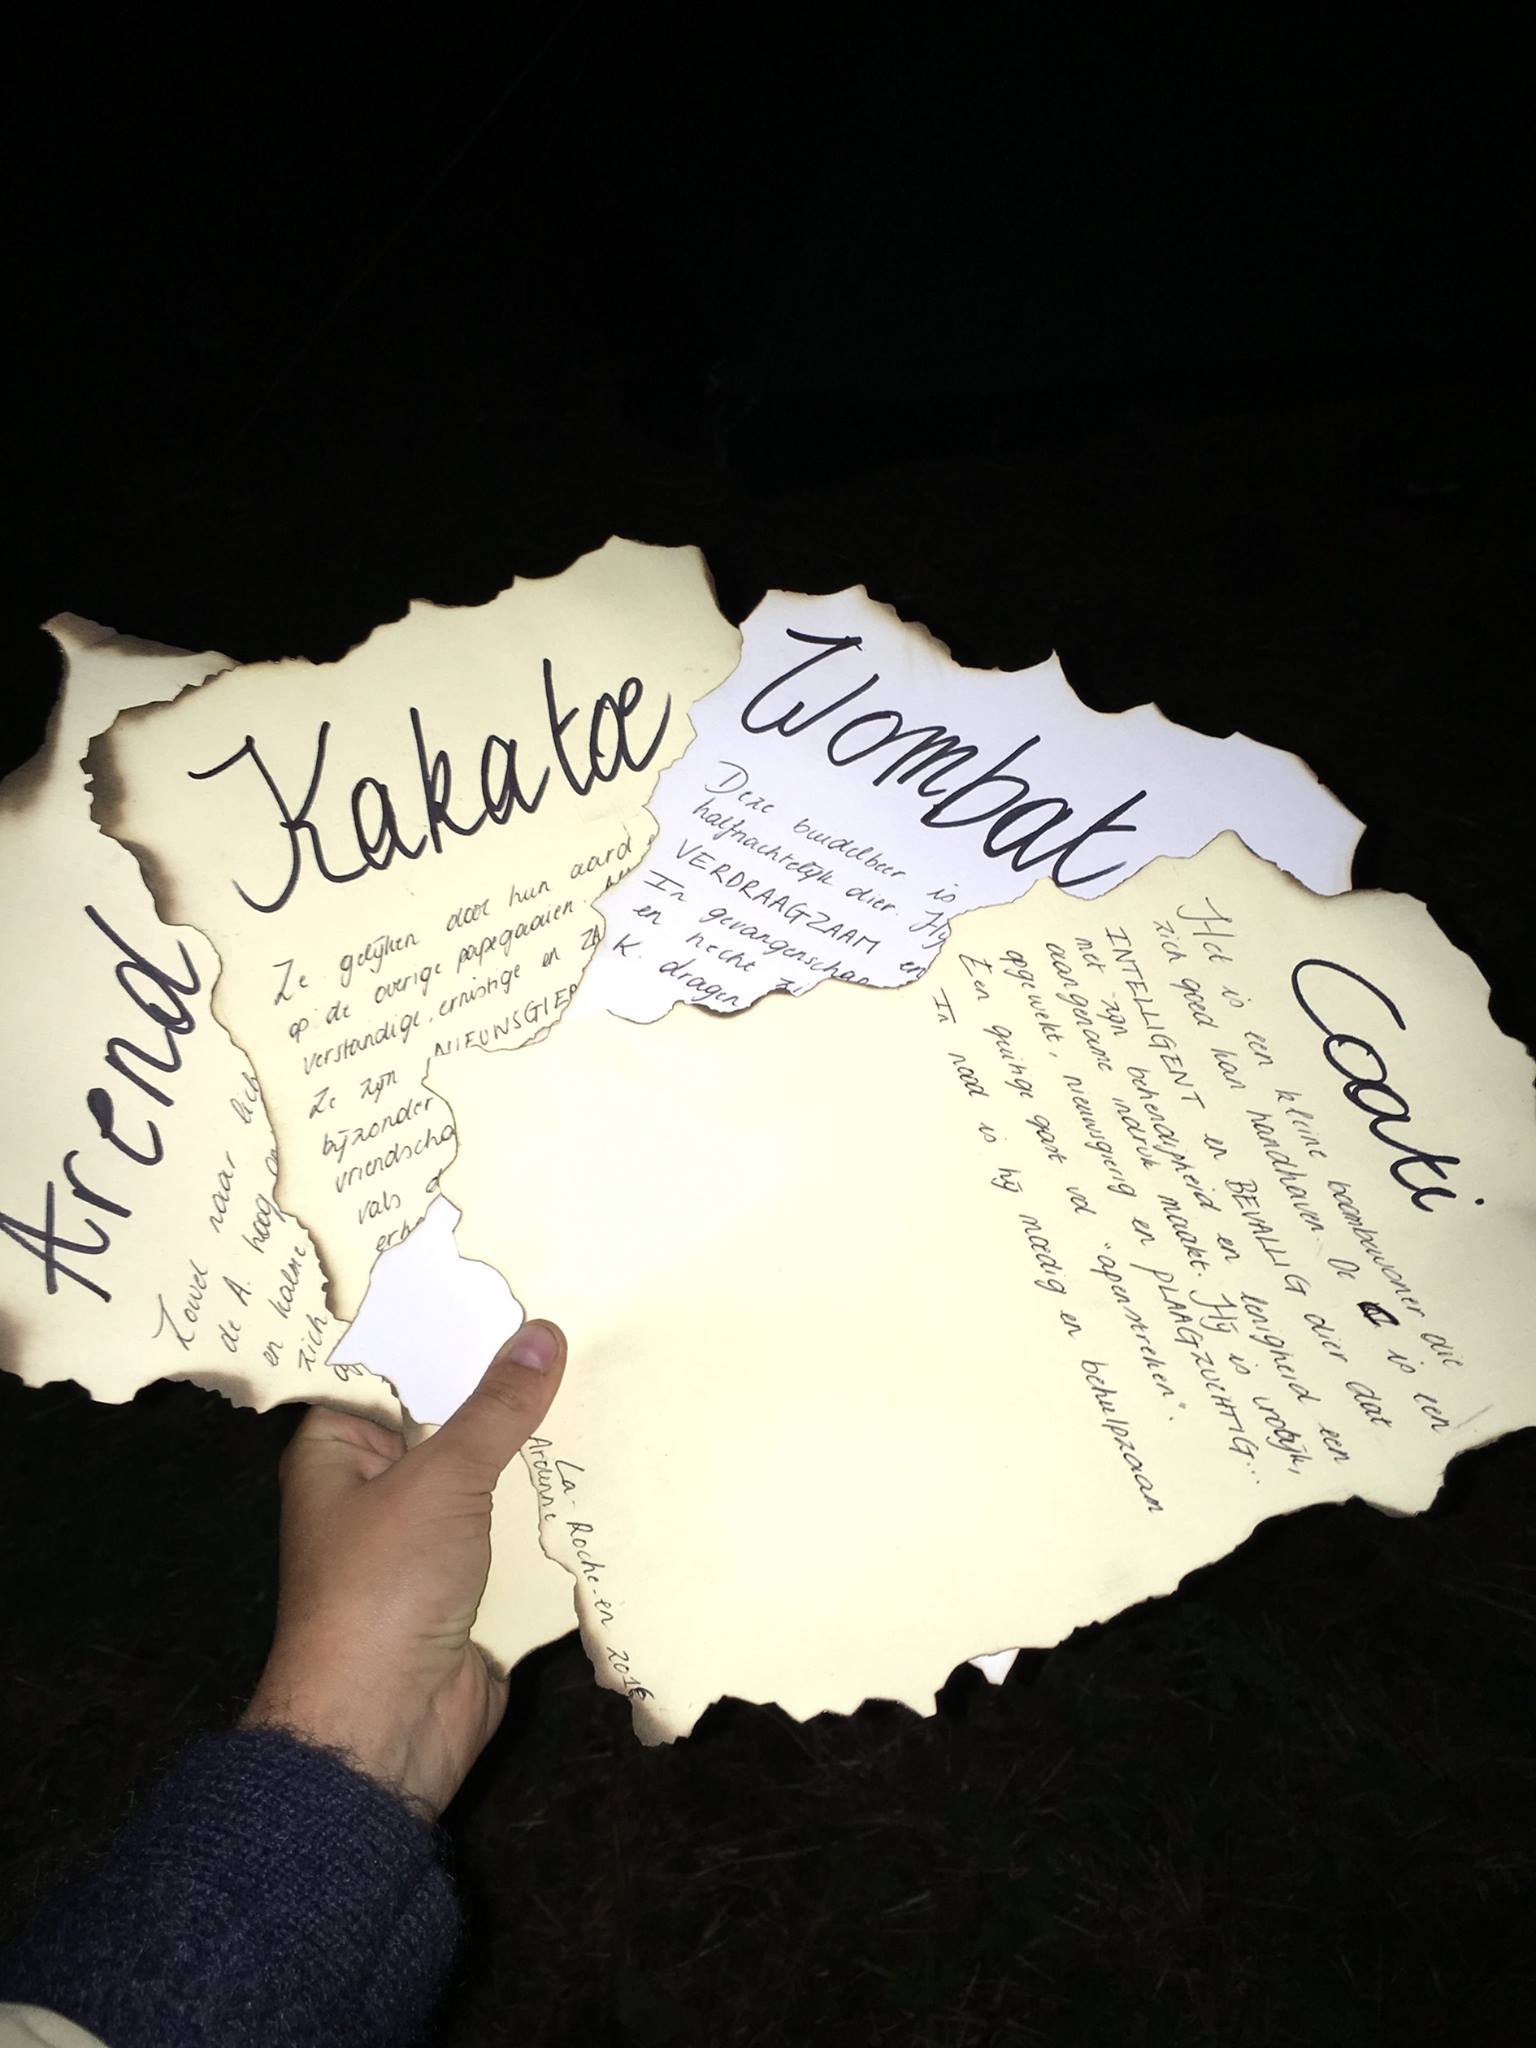 Arend
Zowel naar lich
de A. hoog
en kalme
zich
Kakatoe
Ze gelijken door hun aard
op de overige papegaaien.
verstandige, ernstige en ZA
NIEUWSGIER
Ze zijn
bijzonder
vriendscha
vals
Wombat
Deze buidelbeer is
halfnachtelijk dier. Hij
VERDRAAGZAAM en
In gevangenschap
en hecht zi
K. dragen
Coati
Het is een kleine boombewoner die
zich goed kan handhaven. De C is een
INTELLIGENT en BEVALLIG dier dat
met zijn behendigheid en lenigheid een
aangename indruk maakt. Hij is vrolijk,
opgewekt, nieuwsgierig en PLAAGZUCHTIG...
Een guitige gast vol "apenstreken".
In nood is hij moedig en behulpzaam
La-Roche-en
Ardenne 2016